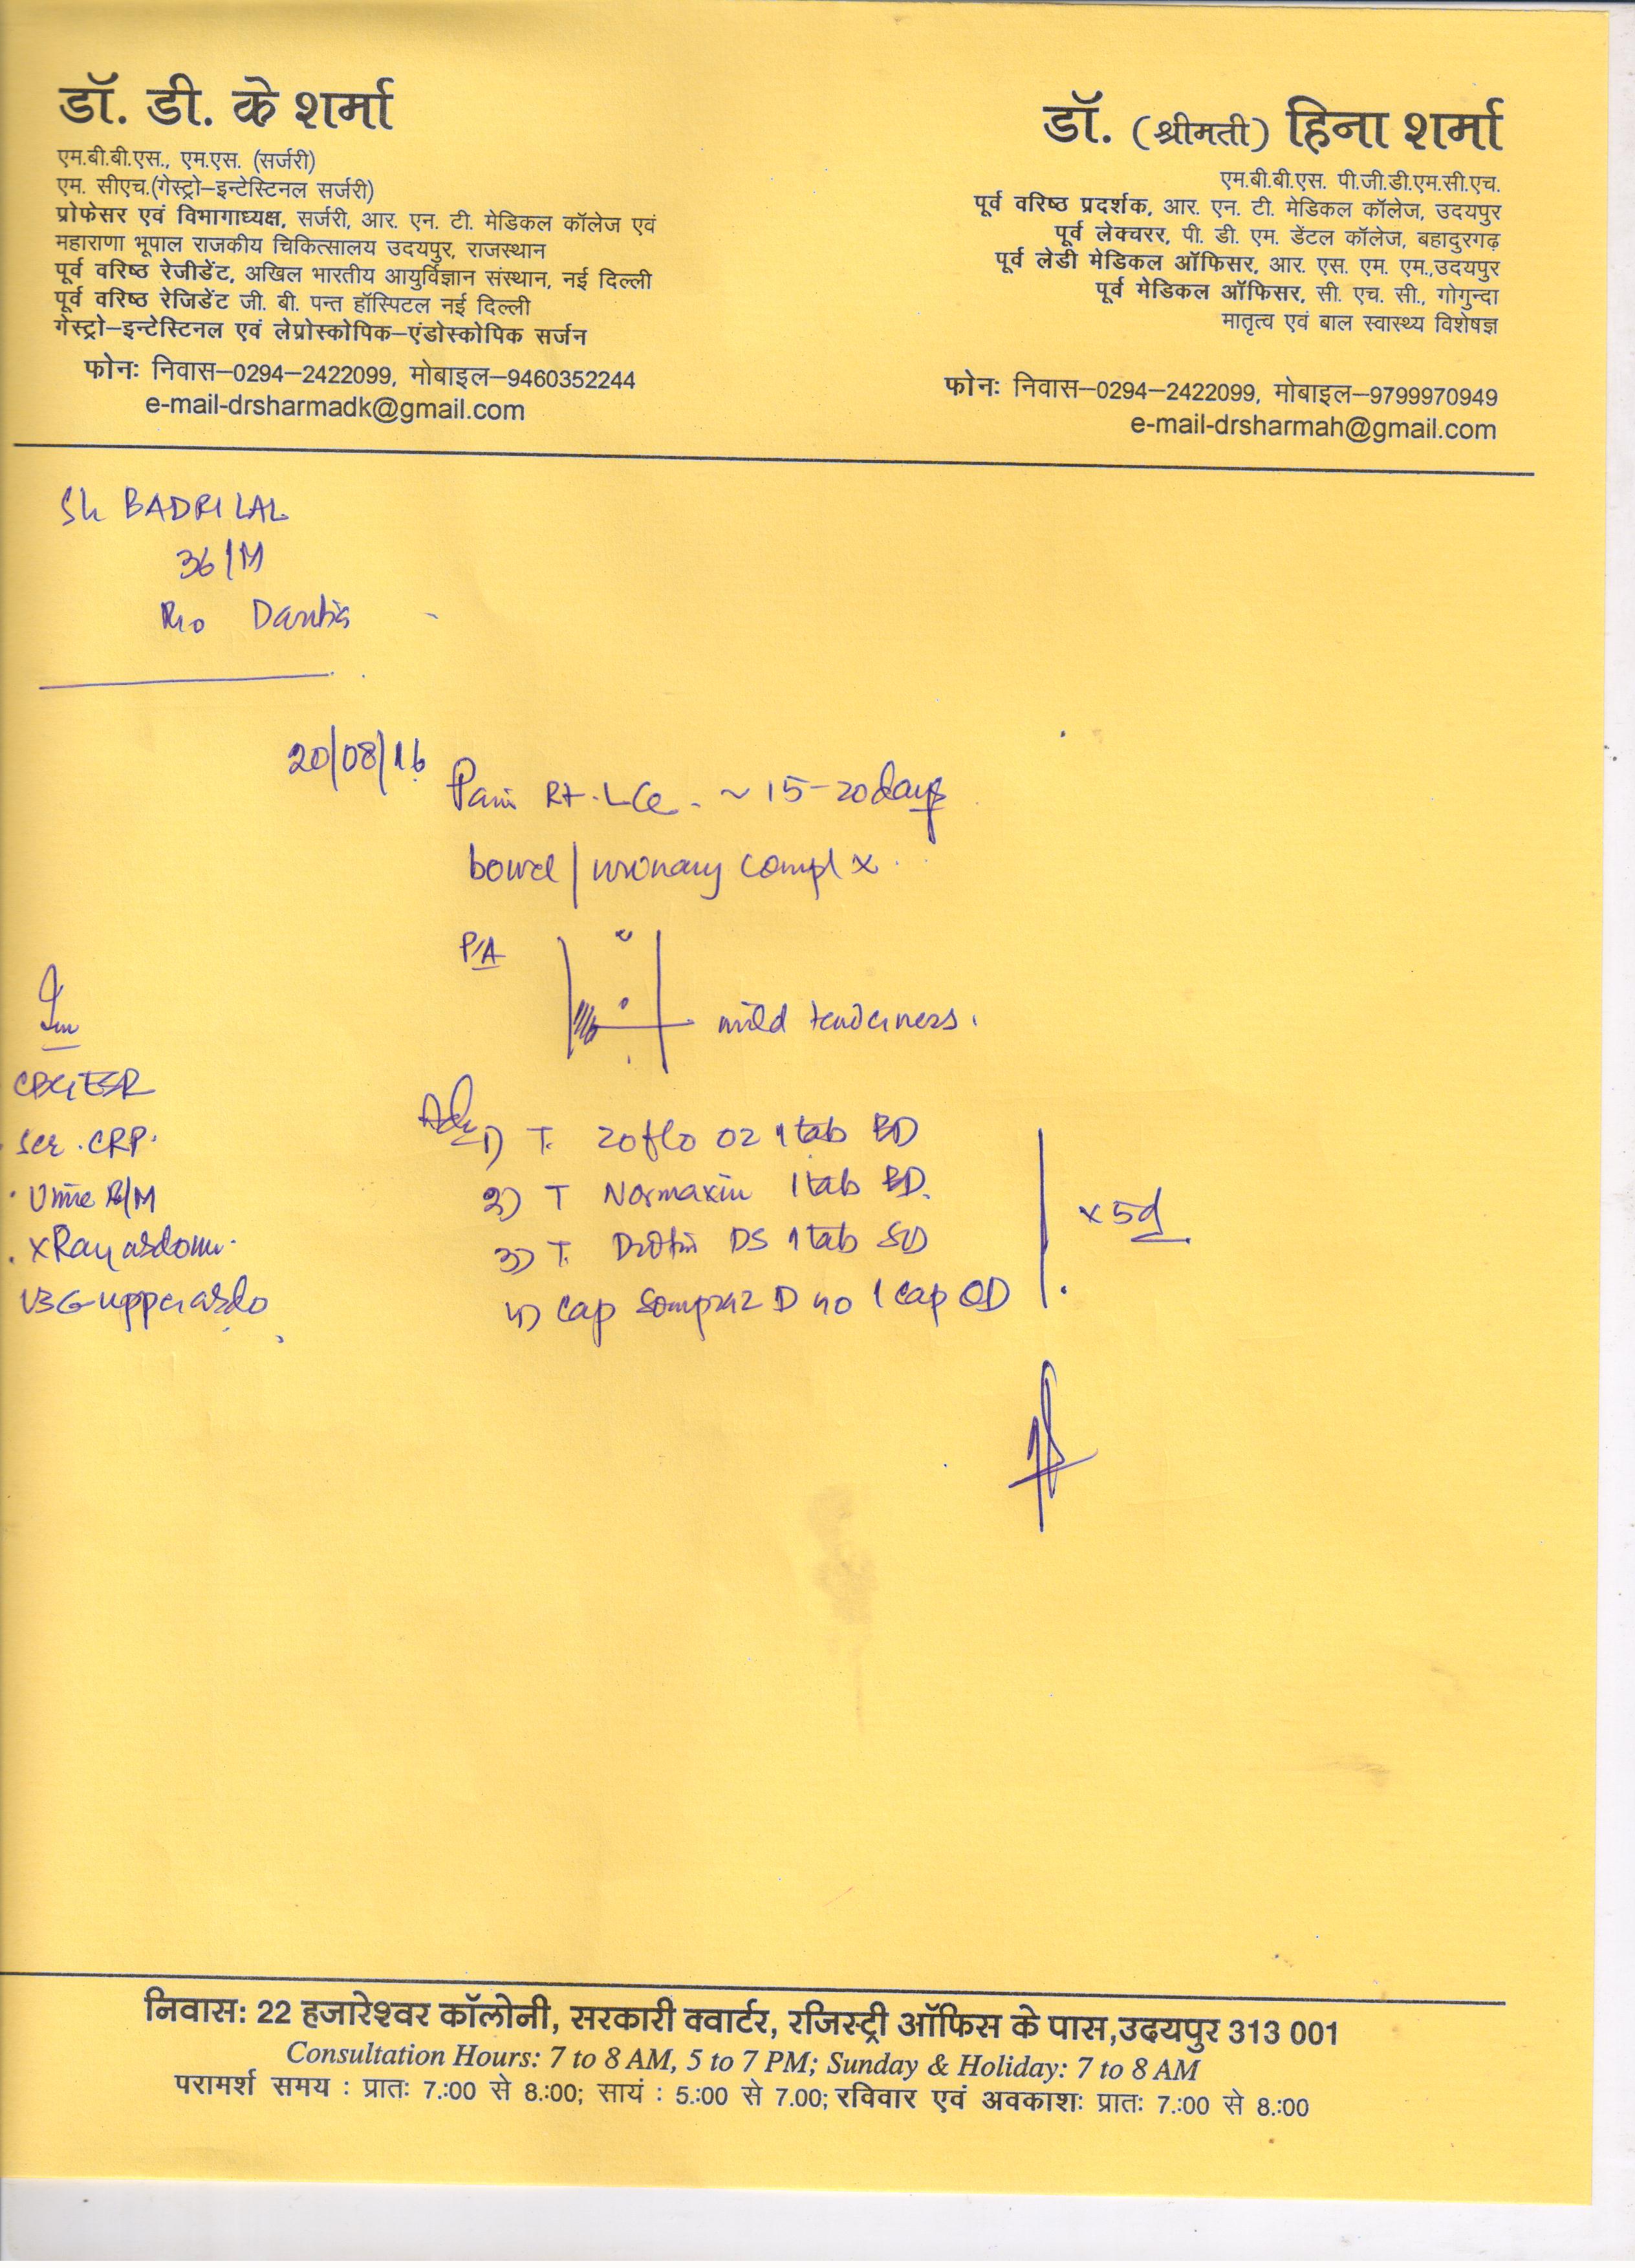 डॉ. डी. के शर्मा
एम.बी.बी.एस., एम.एस. (सर्जरी)
एम. सीएच.(गेस्ट्रो–इन्टेस्टिनल सर्जरी)
प्रोफेसर एवं विभागाध्यक्ष, सर्जरी, आर. एन. टी. मेडिकल कॉलेज एवं
महाराणा भूपाल राजकीय चिकित्सालय उदयपुर, राजस्थान
पूर्व वरिष्ठ रेजीडेंट, अखिल भारतीय आयुर्विज्ञान संस्थान, नई दिल्ली
पूर्व वरिष्ठ रेजिडेंट जी. बी. पन्त हॉस्पिटल नई दिल्ली
गेस्ट्रो–इन्टेस्टिनल एवं लेप्रोस्कोपिक–एंडोस्कोपिक सर्जन
फोनः निवास–0294–2422099, मोबाइल–9460352244
e-mail-drsharmadk@gmail.com
डॉ. (श्रीमती) हिना शर्मा
एम.बी.बी.एस. पी.जी.डी.एम.सी.एच.
पूर्व वरिष्ठ प्रदर्शक, आर. एन. टी. मेडिकल कॉलेज, उदयपुर
पूर्व लेक्चरर, पी. डी. एम. डेंटल कॉलेज, बहादुरगढ़
पूर्व लेडी मेडिकल ऑफिसर, आर. एस. एम. एम.,उदयपुर
पूर्व मेडिकल ऑफिसर, सी. एच. सी., गोगुन्दा
मातृत्व एवं बाल स्वास्थ्य विशेषज्ञ
फोनः निवास–0294–2422099, मोबाइल–9799970949
e-mail-drsharmah@gmail.com
Sh BADRI LAL
36/M
R/o
20/08/16
Pain Rt. ~ 15-20 days
bowel / urinary compl x
P/A
mild tenderness.
Inv
CBC ESR
Ser. CRP.
Urine R/M
xRay abdom.
USG upper abdo
Adv
1) T. Zoflo OZ 1 tab BD
2) T Normaxin 1 tab BD.
3) T. Drotin DS 1 tab
4) Cap Sompraz D 40 1 cap OD
x 5d
निवासः 22 हजारेश्वर कॉलोनी, सरकारी क्वार्टर, रजिस्ट्री ऑफिस के पास,उदयपुर 313 001
Consultation Hours: 7 to 8 AM, 5 to 7 PM; Sunday & Holiday: 7 to 8 AM
परामर्श समय : प्रातः 7.:00 से 8.:00; सायं : 5.:00 से 7.00; रविवार एवं अवकाशः प्रातः 7.:00 से 8.:00